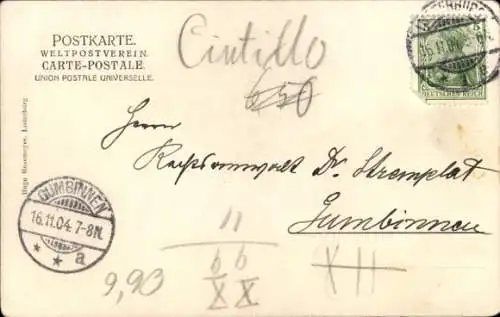 POSTKARTE.
WELTPOSTVEREIN.
CARTE-POSTALE.
UNION POSTALE UNIVERSELLE.
Cintillo
650
15.11.04
DEUTSCHES REICH
Herrn
Rechtsanwalt Dr. Stremplat
Gumbinnen
GUMBINNEN
16.11.04.7-8N.
* * a
11
66
XX
XII
9,90